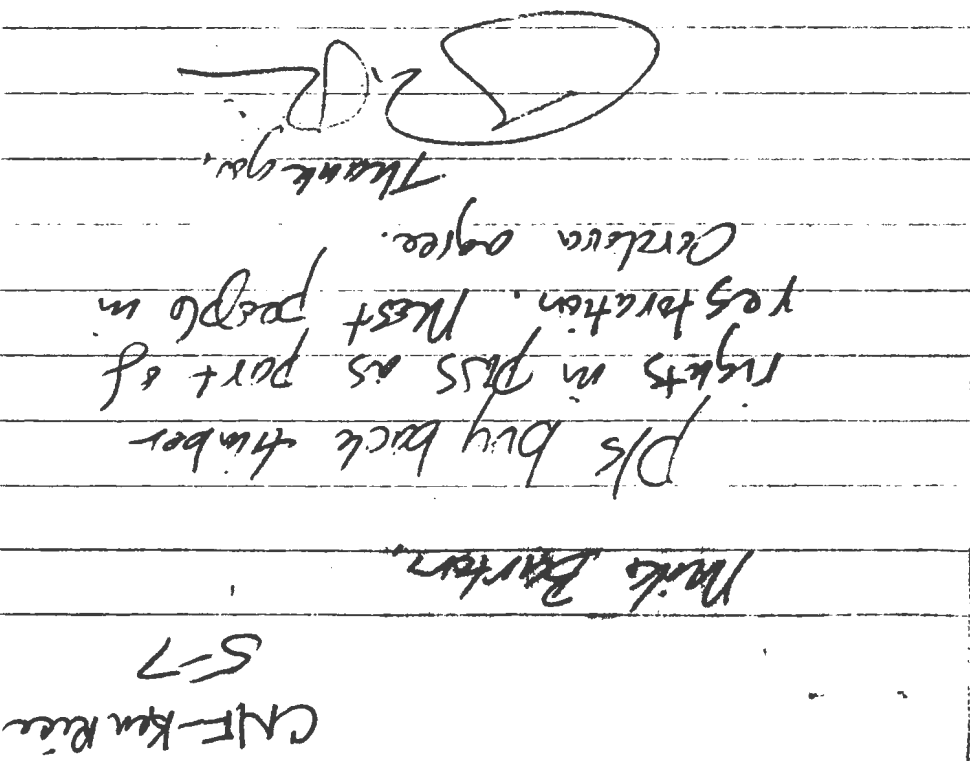 CNF-Ken Rice
5-7
Mike Barton,
Pls buy back timber
rights in PWS as part of
restoration. Most people in
Cordova agree.
Thank you.